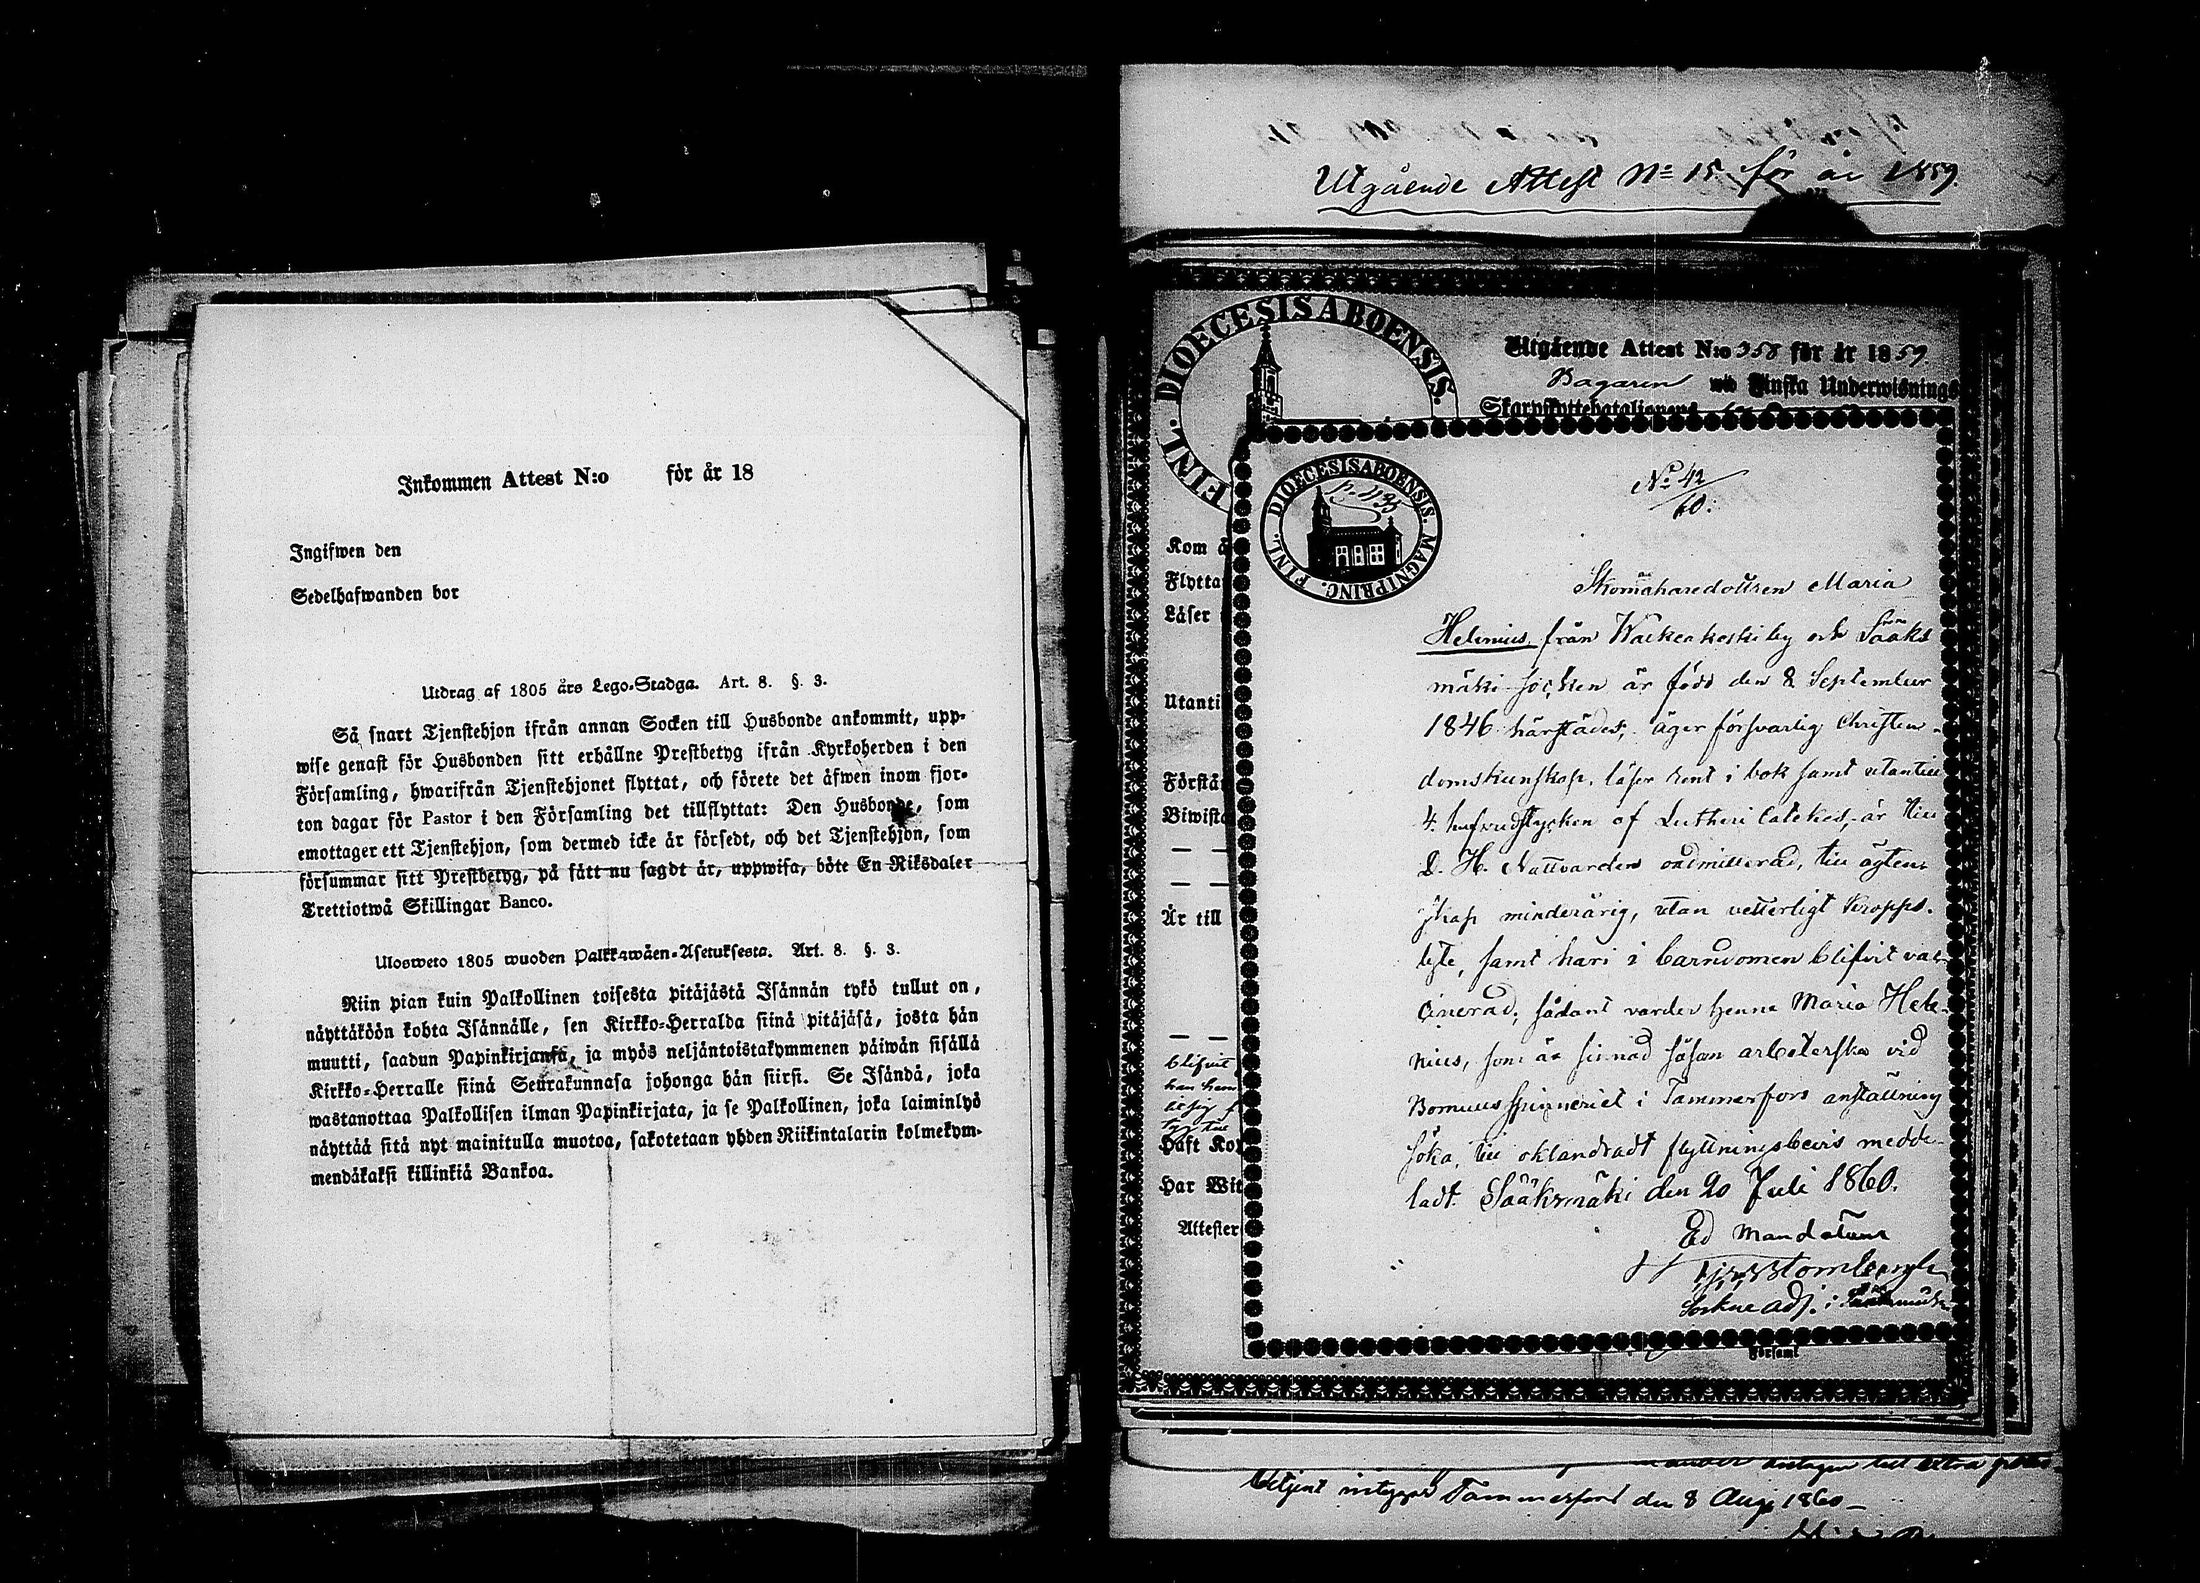 Inkommen Attest N:o för år 18
Ingifwen den
Sedelhafwanden bor
Utdrag af 1805 års Lego-Stadga. Art. 8. §. 3.
Så snart Tjenstehjon ifrån annan Socken till Husbonde ankommit, upp-
wise genast för Husbonden sitt erhållne Prestbetyg ifrån Kyrkoherden i den
Församling, hwarifrån Tjenstehjonet flyttat, och förete det äfwen inom fjor-
ton dagar för Pastor i den Församling det tillflyttat: Den Husbonde, som
emottager ett Tjenstehjon, som dermed icke är försedt, och det Tjenstehjon, som
försummar sitt Prestbetyg, på sätt nu sagdt är, uppwisa, böte En Riksdaler
Trettiotwå Skillingar Banco.
Ulosweto 1805 wuoden Palkkawäen-Asetuksesta. Art. 8. §. 3.
Niin pian kuin Palkollinen toisesta pitäjästä Isännän tykö tullut on,
näyttäköön kohta Isännälle, sen Kirkko-Herralda siinä pitäjäsä, josta hän
muutti, saadun Papinkirjansa, ja myös neljäntoistakymmenen päiwän sisällä
Kirkko-Herralle siinä Seurakunnasa johonga hän siirsi. Se Isändä, joka
wastanottaa Palkollisen ilman Papinkirjata, ja se Palkollinen, joka laiminlyö
näyttää sitä nyt mainitulla muotoa, sakotetaan yhden Riikintalarin kolmekym-
mendäkaksi killinkiä Bankoa.
Utgående Attest No 15 för år 1859.
FINL. DIOECESIS ABOENSIS.
Utgående Attest N:o 358 för år 1859
Bagaren wid Finska Underwisnings
Skarpskyttebataljonens
Kom
Flytta
Läser
Utanti
Förstå
Biwista
— —
— —
Är till
— —
blifvit
Haft Ko
Har Wit
Attester
DIOECESIS ABOENSIS. MAGNI PRINC. FINL.
p. 1135
No 42
60.
Skomakaredottren Maria
Helenius från Waikeakoski by och Sääks
mäki socken är född den 8 September
1846 härstädes, äger försvarlig Christen-
domskunskap, läser rent i bok samt utantill
4. hufvudstycken af Lutheri Cateches, är till
D. H. Nattvarden oadmitterad, till ägten-
skap minderårig, utan vetterligt kropps-
lyte, samt har i barndomen blifvit vac-
cinerad; sådant varder henne Maria Hele-
nius, som är sinnad såsom arbeterska vid
Bomullsspinneriet i Tammerfors anställning
söka, till oklandradt flyttningsbevis medde-
ladt. Sääksmäki den 20 Juli 1860.
Ed Mandatum
Stormbergh
Sockne adj. i Sääksmäki
Församl
antagen till
Tammerfors den 8 Aug 1860